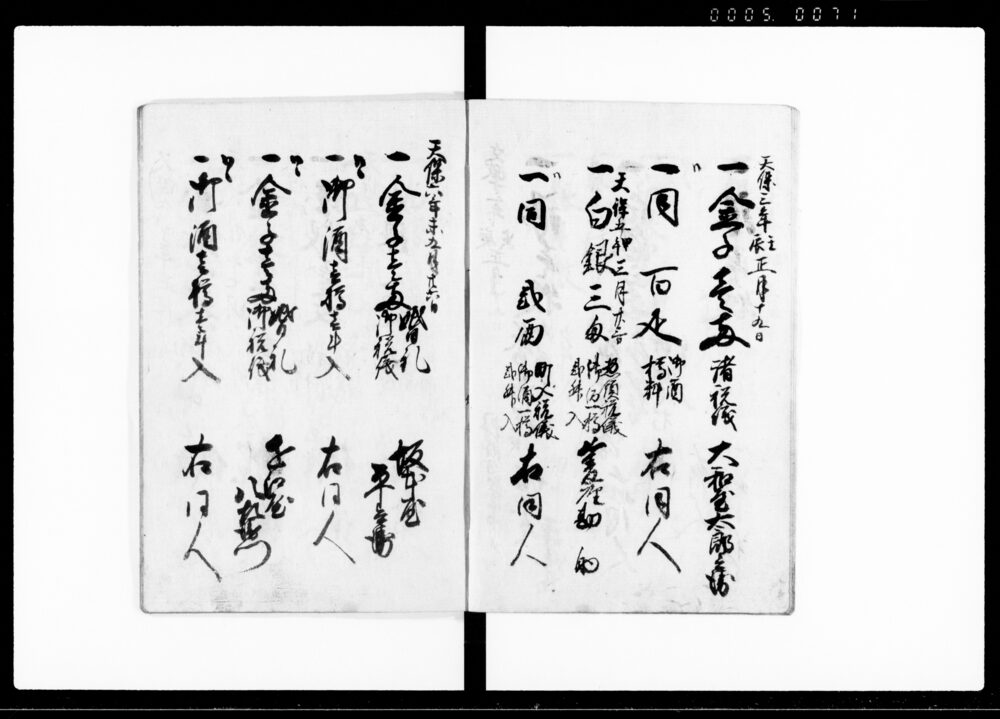 0005 0071
天保三年壬辰正月十九日
一金子壱両 諸祝儀 大和屋太郎兵衛
一同 百疋 御酒樽料 右同人
天保五年甲三月
一白銀三両 御酒一樽 弐升入 勘助
一同 弐両 町入祝儀 御酒一樽 弐升入 右同人
天保六年未五月十六日
一金子壱両 婚礼御祝儀 坂本屋平兵衛
一御酒壱樽 壱斗入 右同人
一金子壱両 婚礼御祝儀
一御酒壱樽 壱斗入 右同人